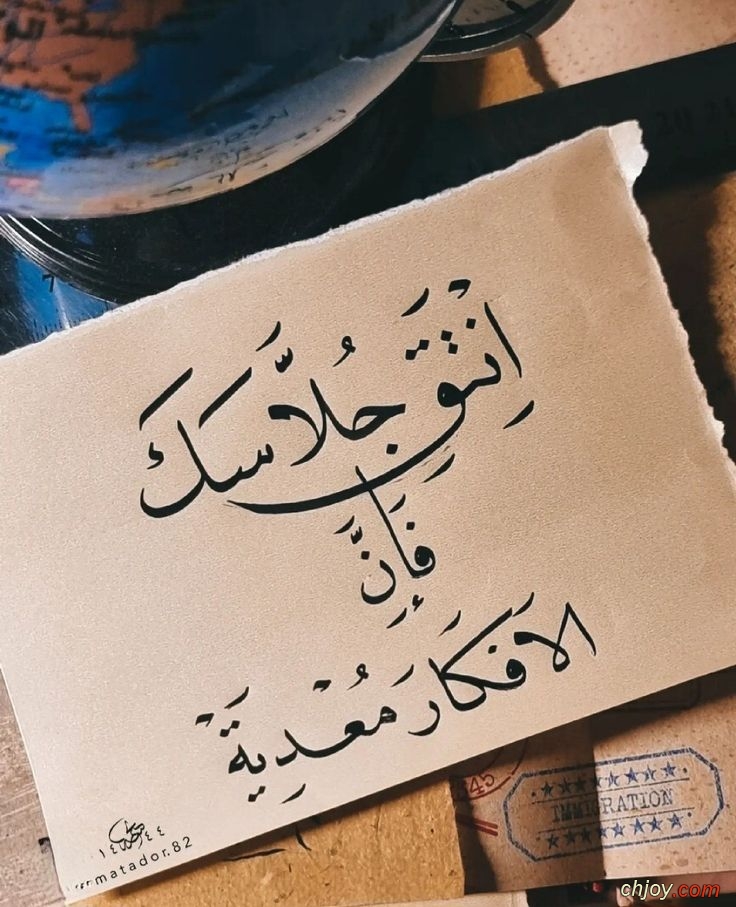 اِنْتَقِ جُلَّاسَكَ
فَإِنَّ
الاَفكَارَ مُعْدِيَةٌ
١٤٤٤
matador.82
IMMIGRATION
45
chjoy.com